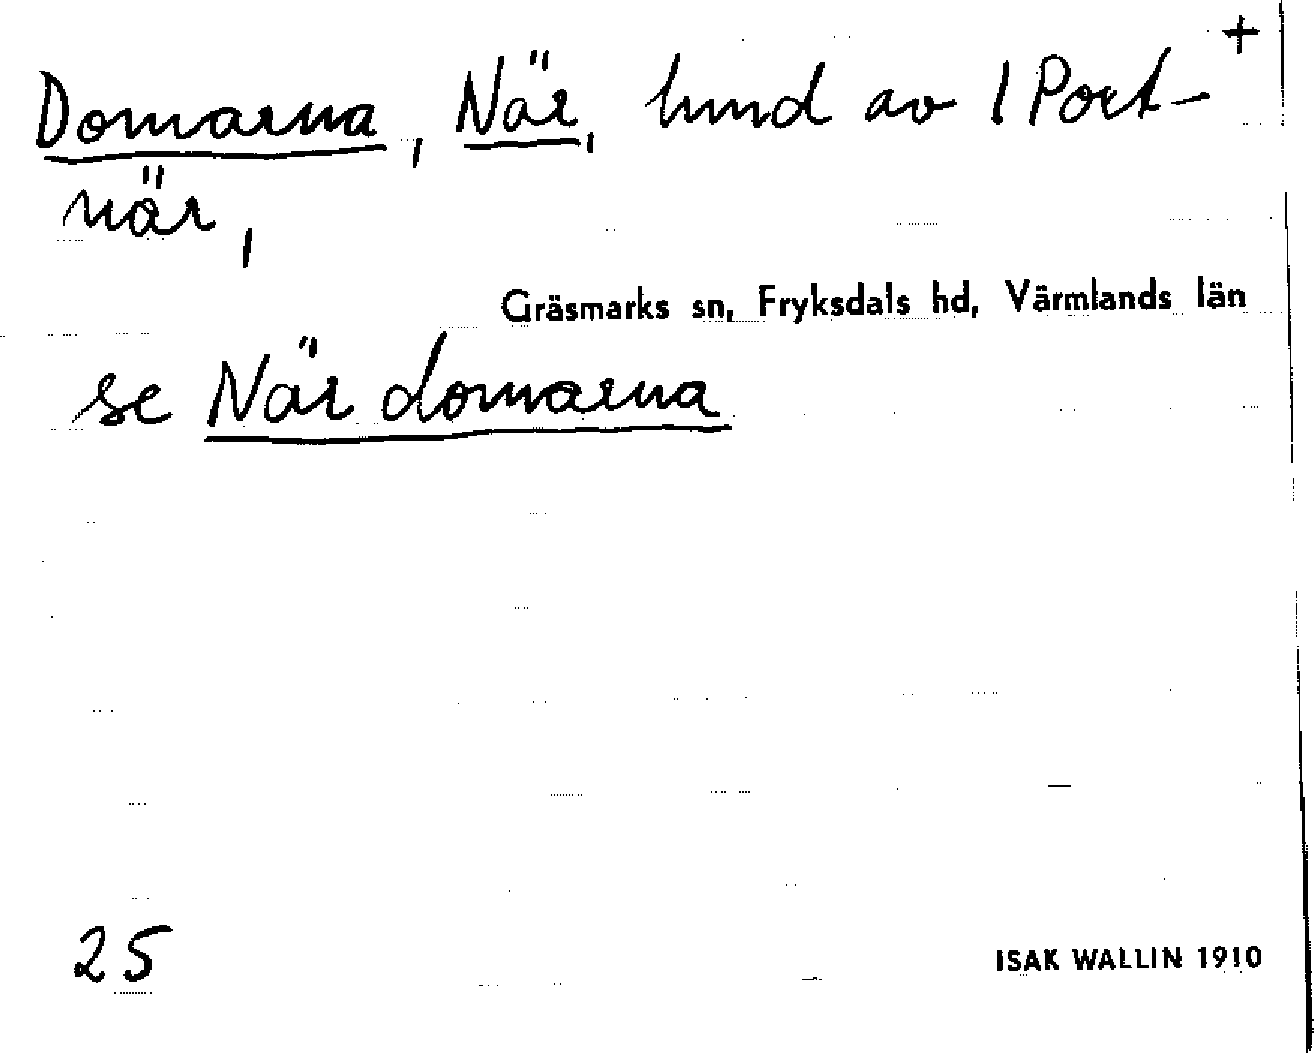 +
Domarna, När, hmd av 1 Port-
när,
Gräsmarks sn, Fryksdals hd, Värmlands län
se När domarna
25
ISAK WALLIN 1910